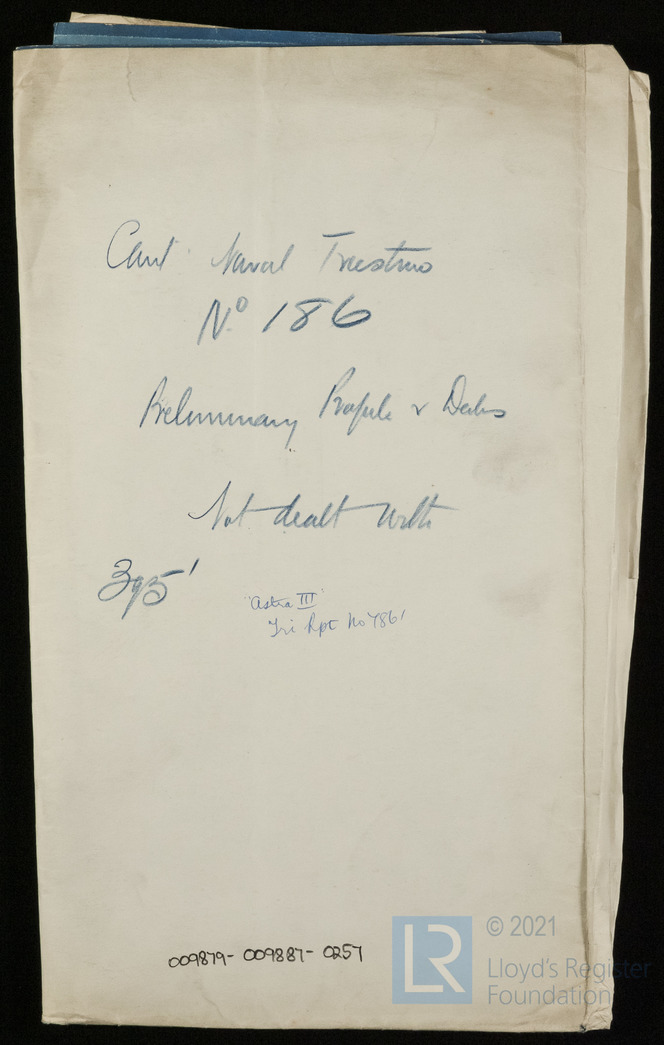 Cant Naval Triestino
Nº 186
Preliminary Profile & Decks
Not dealt with
395'
"Astra III"
Tri Rpt No 7861
009879-009887-0257
LR
© 2021
Lloyd's Register
Foundation